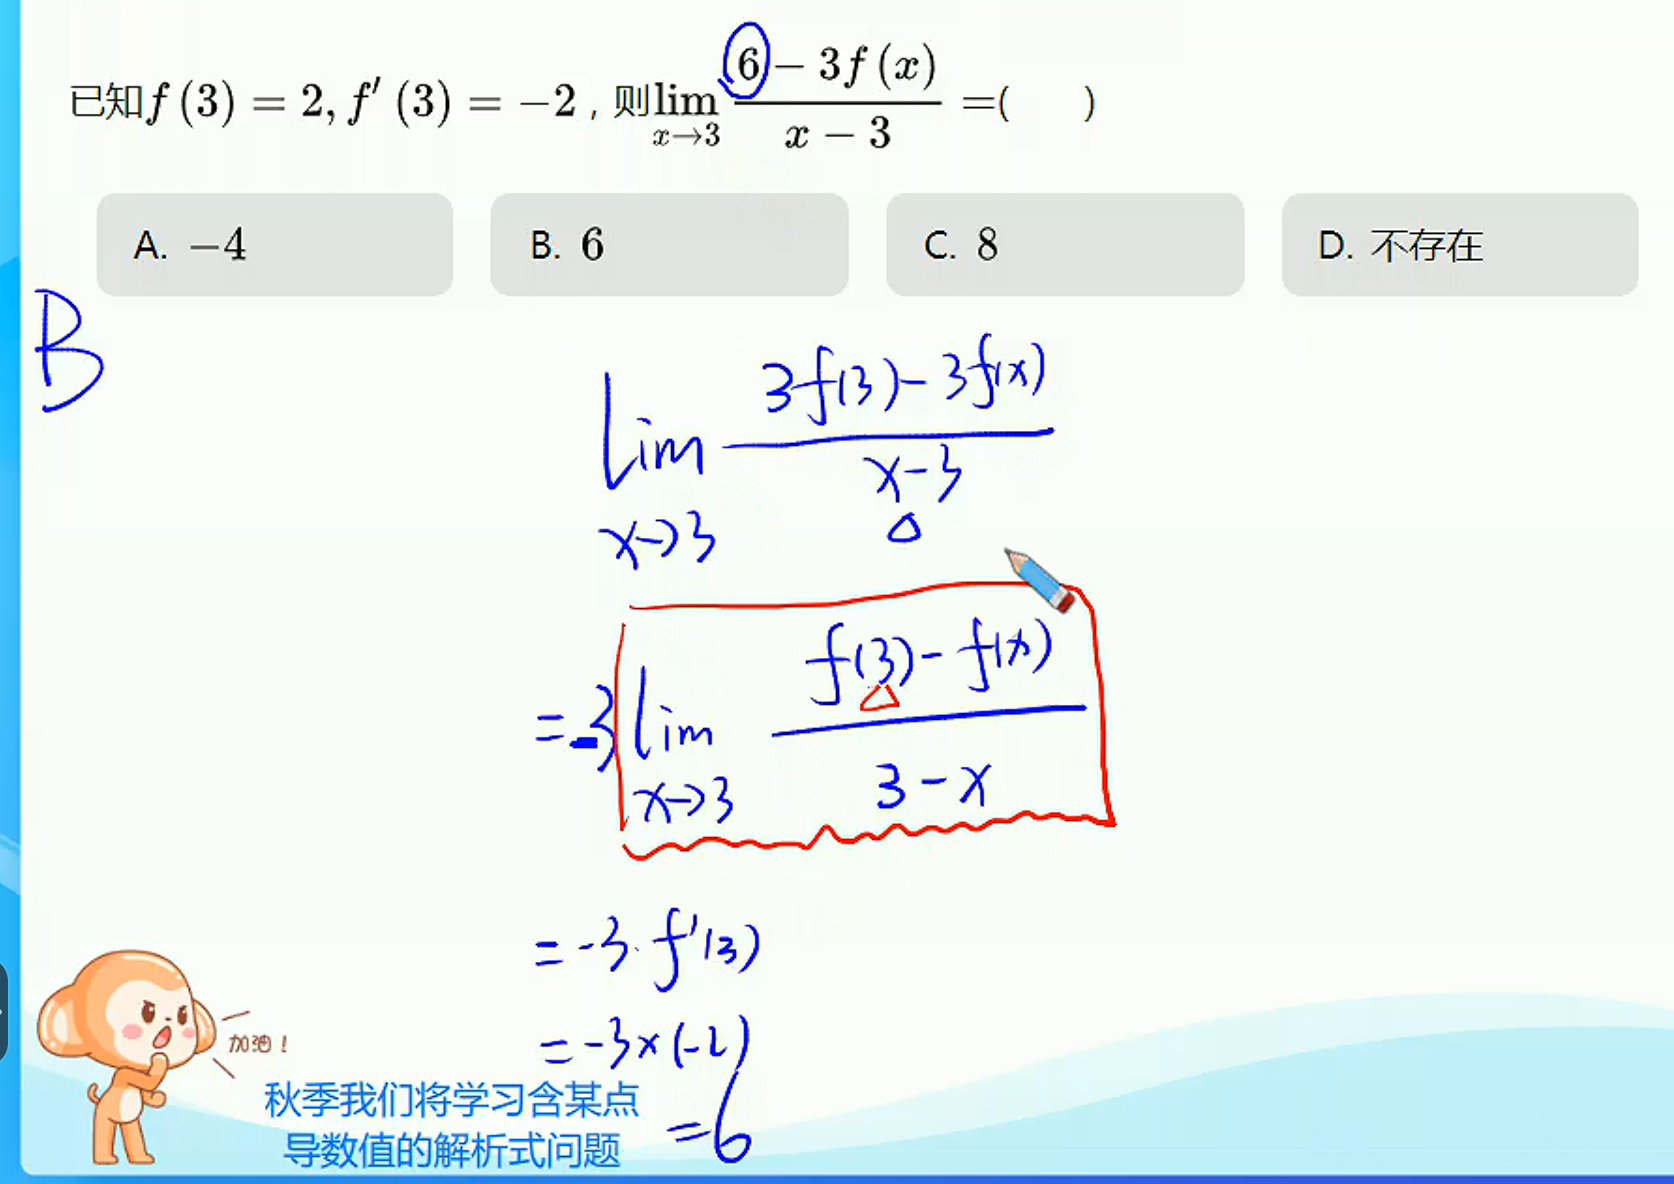 已知f(3)=2,f′(3)=−2，则lim_{x→3} (6−3f(x))/(x−3) =(　　)
A. −4
B. 6
C. 8
D. 不存在
B
lim_{x→3} (3f(3)−3f(x))/(x−3)
=-3 lim_{x→3} (f(3)−f(x))/(3−x)
=-3·f′(3)
=-3×(-2)
=6
加油！
秋季我们将学习含某点
导数值的解析式问题